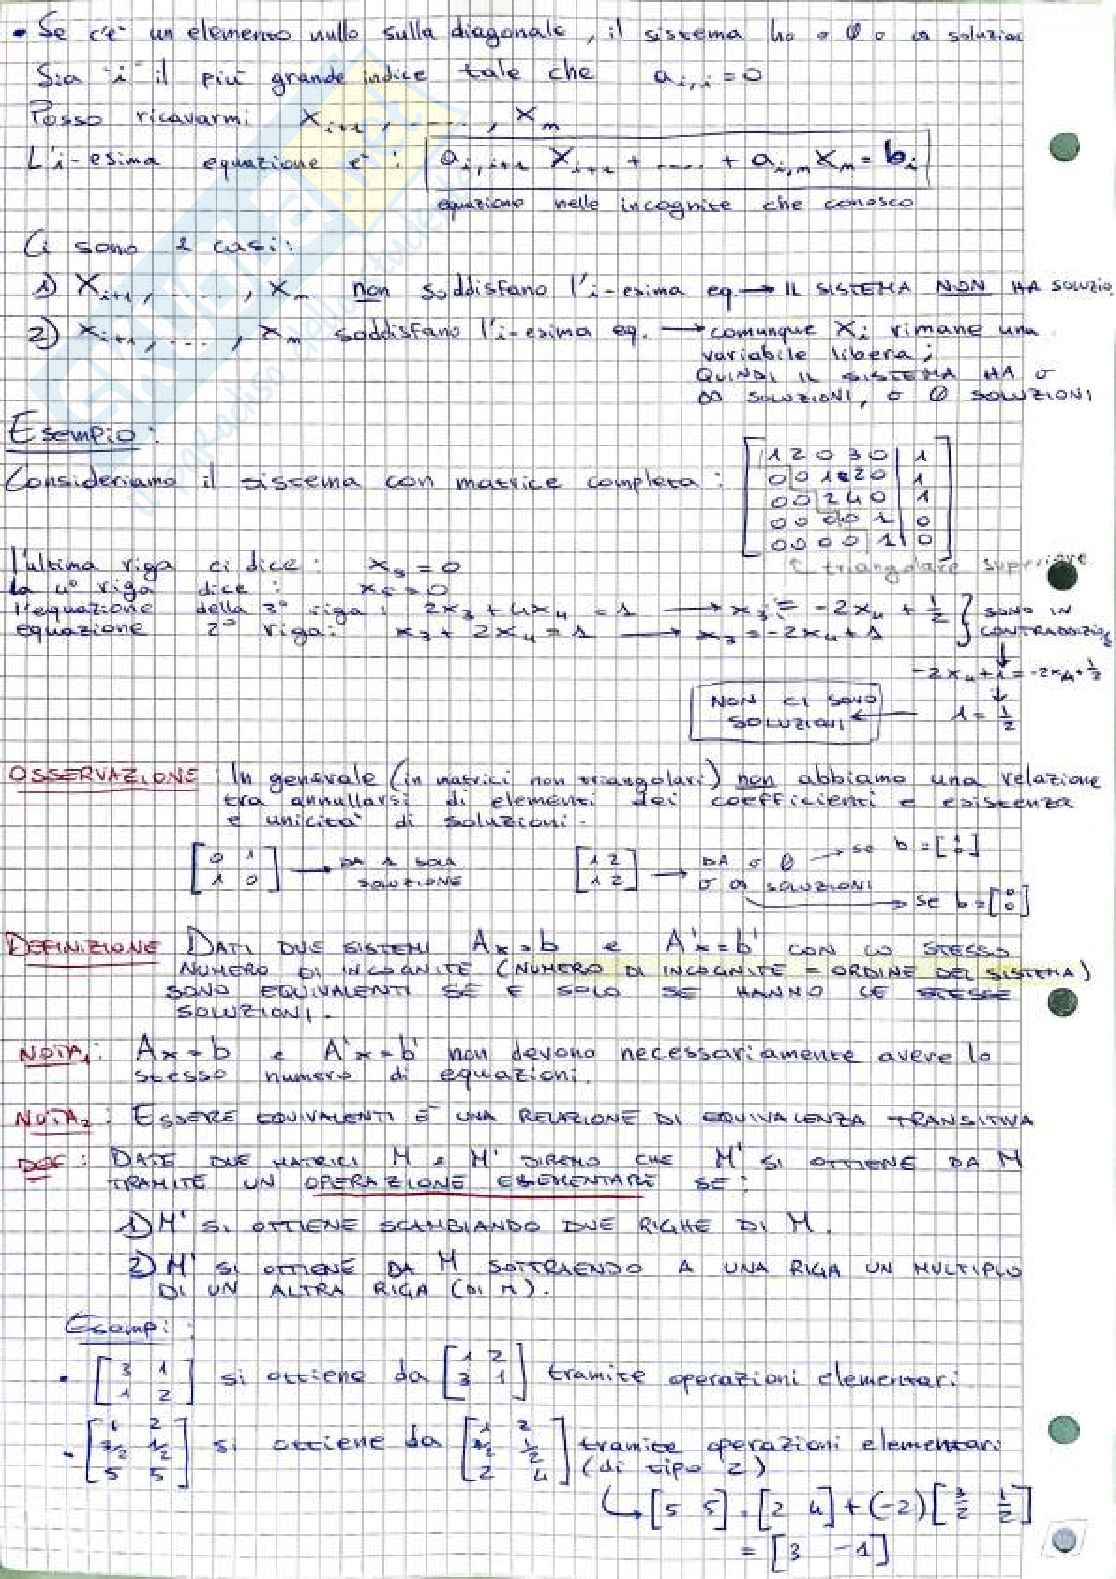 • Se c'è un elemento nullo sulla diagonale, il sistema ha o Ø o ∞ soluzioni
Sia "i" il più grande indice tale che a_{i,i} = 0
Posso ricavarmi X_{i+1}, ...., X_m
L'i-esima equazione è: a_{i,i+1} X_{i+1} + .... + a_{i,m} X_m = b_i
equazione nelle incognite che conosco
Ci sono 2 casi:
1) X_{i+1}, ....., X_m non soddisfano l'i-esima eq → IL SISTEMA NON HA SOLUZIO
2) X_{i+1}, ...., X_m soddisfano l'i-esima eq. → comunque X_i rimane una
variabile libera;
QUINDI IL SISTEMA HA O
∞ SOLUZIONI, O Ø SOLUZIONI
Esempio:
Consideriamo il sistema con matrice completa:
1 2 0 3 0 | 1
0 0 1 2 0 | 1
0 0 2 4 0 | 1
0 0 0 0 1 | 0
0 0 0 0 1 | 0
↑ triangolare superiore
l'ultima riga ci dice: x_5 = 0
la 4° riga dice: x_5 = 0
l'equazione della 3° riga: 2x_3 + 4x_4 = 1 → x_3 = -2x_4 + 1/2
equazione 2° riga: x_3 + 2x_4 = 1 → x_3 = -2x_4 + 1
SONO IN
CONTRADDIZIONE
-2x_4 + 1 = -2x_4 + 1/2
1 = 1/2
NON CI SONO
SOLUZIONI
OSSERVAZIONE In generale (in matrici non triangolari) non abbiamo una relazione
tra annullarsi di elementi dei coefficienti e esistenza
e unicità di soluzioni.
[0 1
1 0] → DA 1 SOLA
SOLUZIONE
[1 2
1 2] → DA O Ø → se b = [1 0]
O ∞ SOLUZIONI → se b = [0 0]
DEFINIZIONE DATI DUE SISTEMI Ax = b e A'x = b' CON LO STESSO
NUMERO DI INCOGNITE (NUMERO DI INCOGNITE = ORDINE DEL SISTEMA)
SONO EQUIVALENTI SE E SOLO SE HANNO LE STESSE
SOLUZIONI.
NOTA_1: Ax = b e A'x = b' non devono necessariamente avere lo
stesso numero di equazioni.
NOTA_2: ESSERE EQUIVALENTI È UNA RELAZIONE DI EQUIVALENZA TRANSITIVA
DEF: DATE DUE MATRICI M e M' DIREMO CHE M' SI OTTIENE DA M
TRAMITE UN OPERAZIONE ELEMENTARE SE:
1) M' SI OTTIENE SCAMBIANDO DUE RIGHE DI M.
2) M' SI OTTIENE DA M SOTTRAENDO A UNA RIGA UN MULTIPLO
DI UN ALTRA RIGA (DI M).
Esempi:
• [3 1
1 2] si ottiene da [1 2
3 1] tramite operazioni elementari
• si ottiene da tramite operazioni elementari
(di tipo 2)
[5 5] = [2 4] + (-2) [3/2 1/2]
= [3 -1]